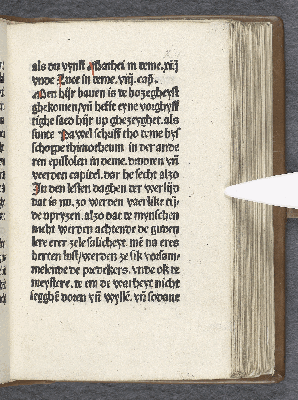 als du vynst Mathei in deme .xij
vnde Luce in deme .viij. cap̄.
Men hijr bauen is de bozegheyst
ghekomen/vn̄ hefft eyne vorghyff
tighe saed hijr up ghezeyghet. als
sunte Pawel schrifft tho deme
in der ande
ren epistolen in deme. vn̄
veerden capittel. dar he secht alzo
In den lesten daghen der werlijd
dat is nu. zo werden vaerlike tij
de upryzen. alzo dat de mynschen
nicht werden achtende de guden
lere erer zelesalicheyt. mē na eres
herten lust/werden ze sik vorsam
melende de predekers. vnde ok de
meystere. de em de warheyt nicht
segghē doren vn̄ wyllē. vn̄ sodane